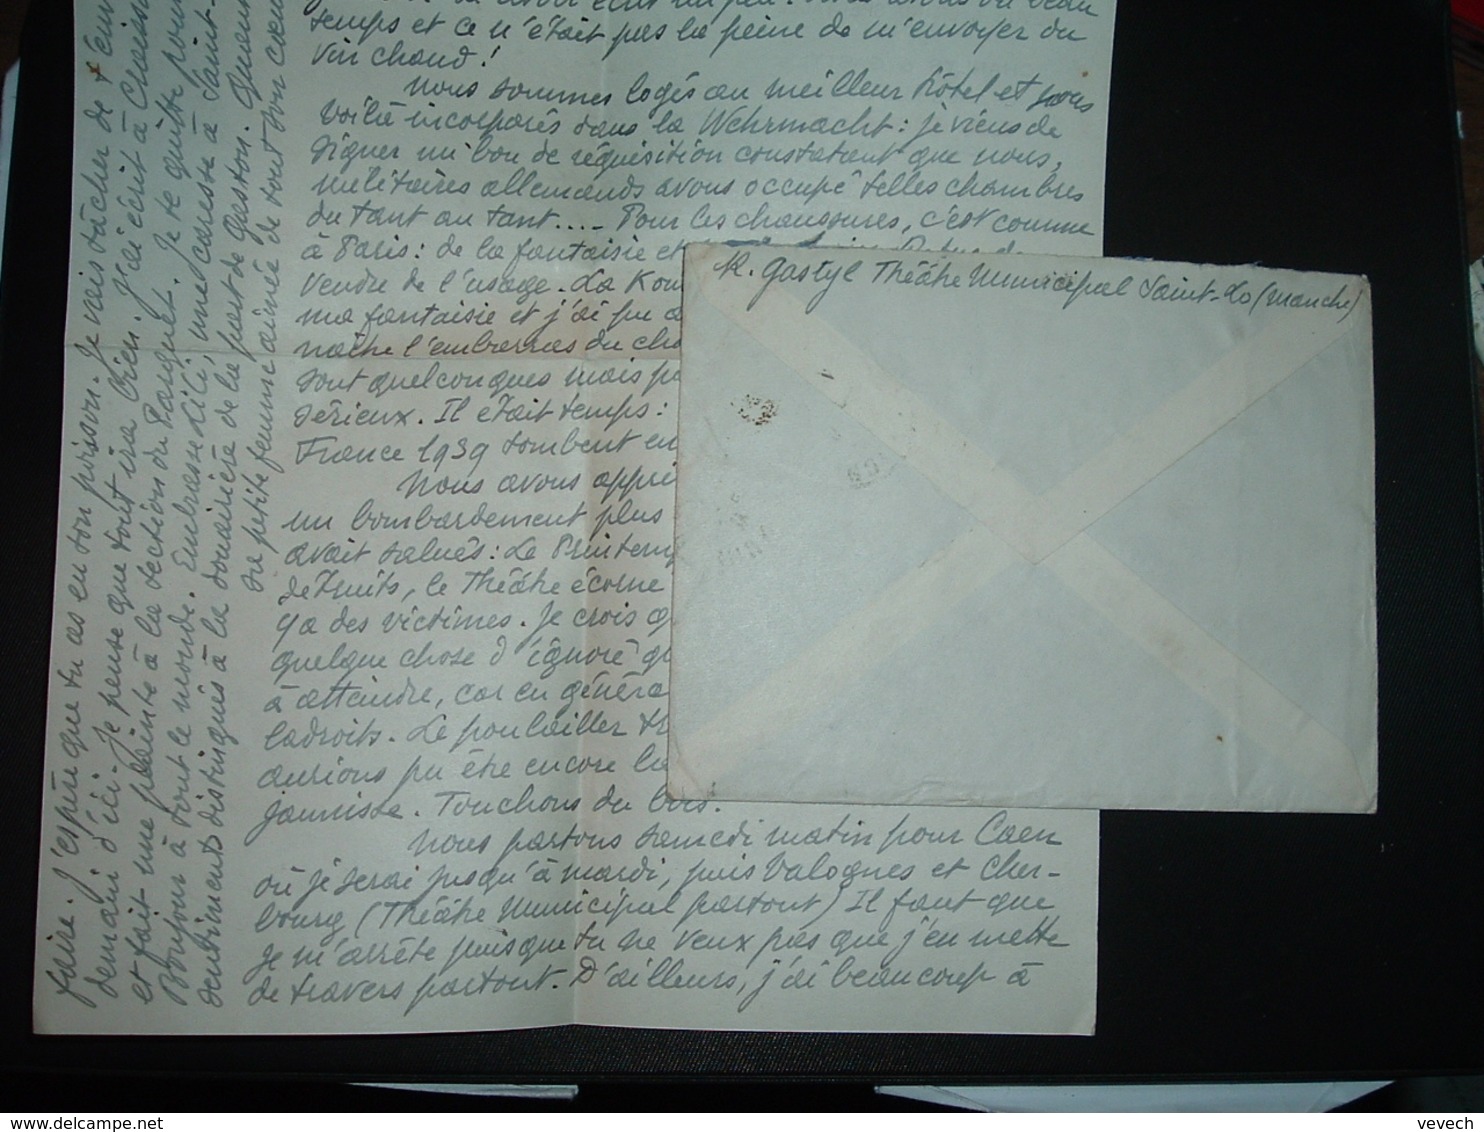 temps et ce n'était pas la peine de m'envoyer du
vin chaud!
Nous sommes logés au meilleur hôtel et nous
voilà incorporés dans la Wehrmacht: je viens de
signer un bon de réquisition constatant que nous,
militaires allemands avons occupé telles chambres
du tant au tant.... Pour les chaussures, c'est comme
à Paris: de la fantaisie et
vendre de l'usage. La Kom
ma fantaisie et j'ai pu a
naître l'embarras du cho
sont quelconques mais p
sérieux. Il était temps:
France 1939 tombent en
Nous avons appri
un bombardement plus
avait salués: Le Printemp
de Fruits, le Théâtre écorné
y a des victimes. Je crois q
quelque chose d'ignoré q
à atteindre, car en généra
ladroits. Le poulailler
aurions pu être encore la
jaunisse. Touchons du bois.
Nous partons samedi matin pour Caen
où je serai jusqu'à mardi, puis Valognes et Cher-
bourg (Théâtre Municipal partout) Il faut que
je m'arrête puisque tu ne veux pas que j'en mette
de travers partout. D'ailleurs, j'ai beaucoup à
faire. J'espère que tu as eu ton poisson. Je vais tâcher de t'env
demain d'ici. Je pense que tout ira bien. J'ai écrit à
et fait une plainte à la section du Parquet. Je te quitte pour
Bonjour à tout le monde. Embrasse Lili, une caresse à
sentiments distingués à la douairière de la part de Gaston.
sa petite femme aimée de tout son cœu
R. Gastyl Théâtre Municipal Saint-Lo (Manche)
vevech